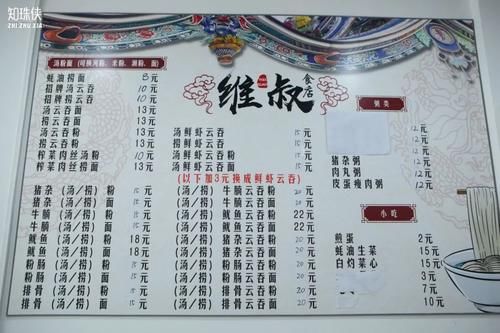 知珠侠
ZHI ZHU XIA
维叔
食店
汤粉面（可换河粉、米粉、濑粉、面）
蚝油捞面 8元
招牌汤云吞 10元
招牌捞云吞 10元
汤云吞面 13元
汤云吞粉 13元
捞云吞面 13元
捞云吞粉 13元
榨菜肉丝汤粉 10元
榨菜肉丝捞面 13元
猪杂（汤/捞）粉 15元
猪杂（汤/捞）面 15元
牛腩（汤/捞）粉 15元
牛腩（汤/捞）面 15元
鱿鱼（汤/捞）粉 18元
鱿鱼（汤/捞）面 18元
粉肠（汤/捞）粉 15元
粉肠（汤/捞）面 15元
排骨（汤/捞）粉 15元
排骨（汤/捞）面 15元
汤鲜虾云吞 15元
捞鲜虾云吞 15元
汤鲜虾云吞粉 15元
汤鲜虾云吞面 15元
（以下加3元换成鲜虾云吞）
（汤/捞）牛腩云吞粉
（汤/捞）牛腩云吞面
（汤/捞）鱿鱼云吞粉 22元
（汤/捞）鱿鱼云吞面 22元
（汤/捞）猪杂云吞粉
（汤/捞）猪杂云吞面
（汤/捞）粉肠云吞粉
（汤/捞）粉肠云吞面
（汤/捞）排骨云吞粉
（汤/捞）排骨云吞面
粥类
12元
12元
猪杂粥 12元
肉丸粥 12元
皮蛋瘦肉粥 12元
小吃
煎蛋 2元
蚝油生菜 15元
白灼菜心 15元
3元
7元
10元